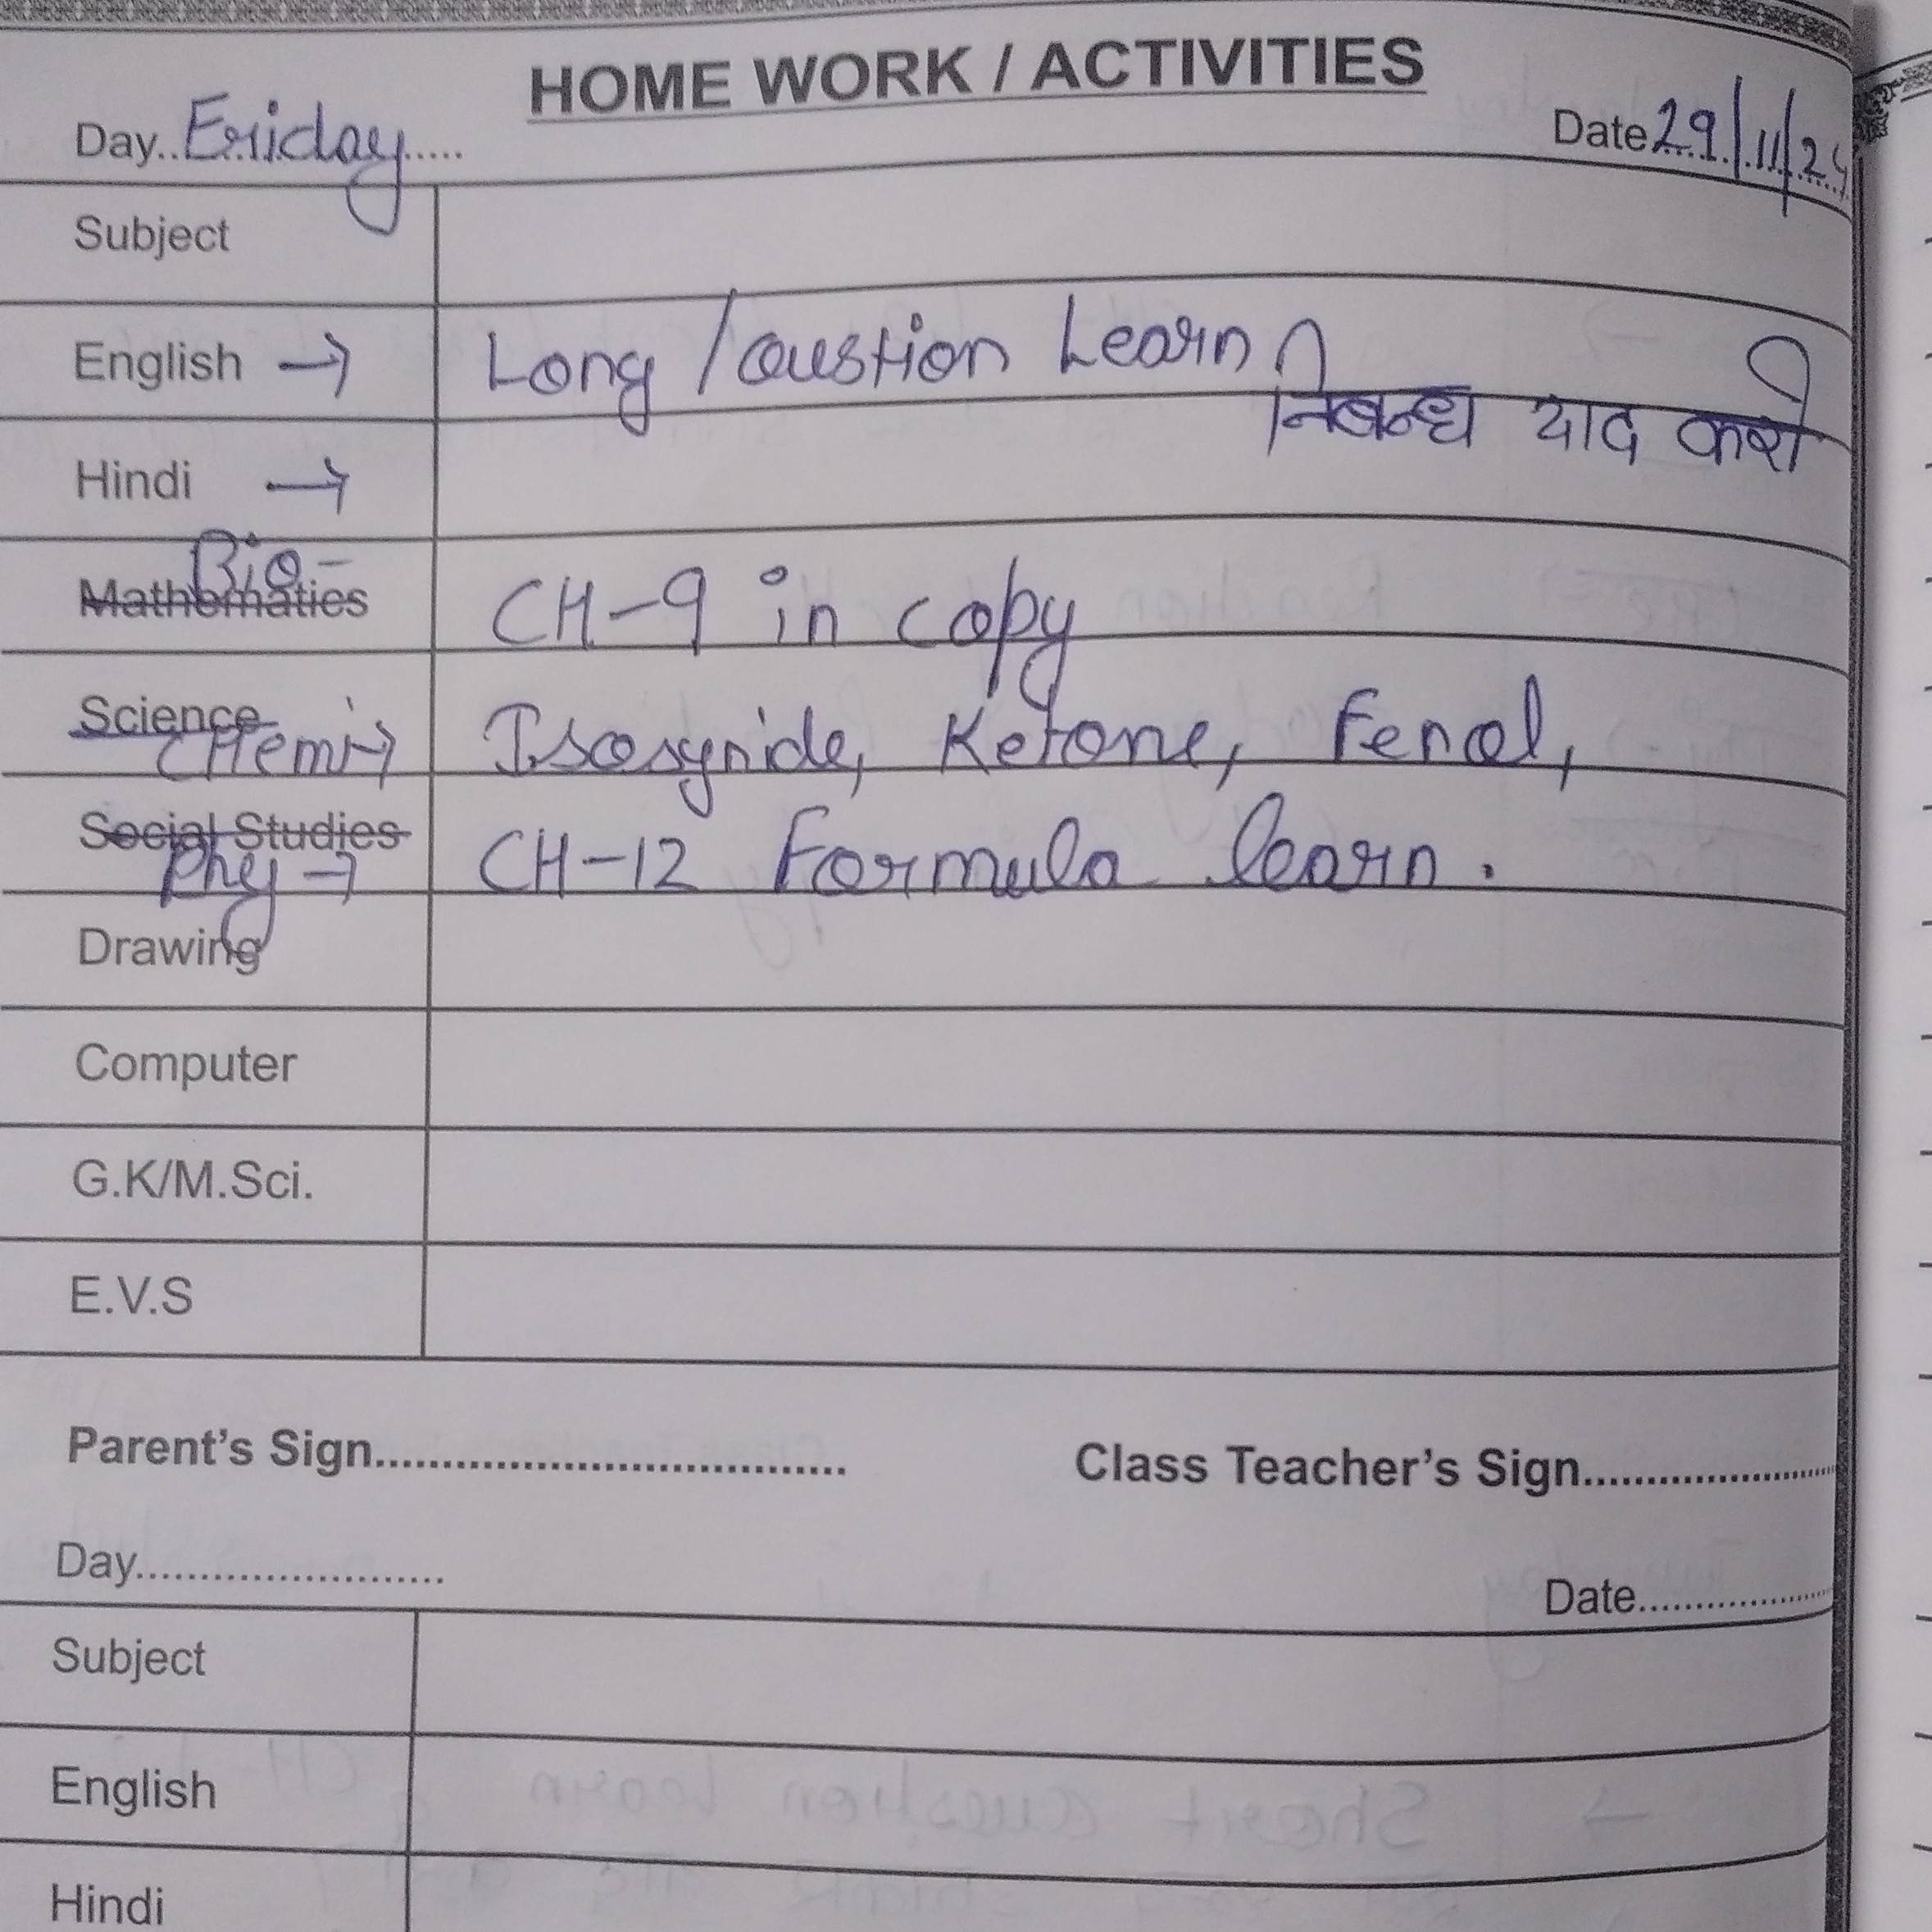 HOME WORK / ACTIVITIES
Day..Friday..... Date29/11/24
Subject
English → Long /Qustion Learn
निबन्ध याद करो
Hindi →
Bio-
Mathematics CH-9 in copy
Science
CHemi→ Isosynide, Ketone, Fenol,
Social Studies
Phy → CH-12 Formula learn.
Drawing
Computer
G.K/M.Sci.
E.V.S
Parent's Sign.................................... Class Teacher's Sign......................
Day........................ Date..................
Subject
English
Hindi